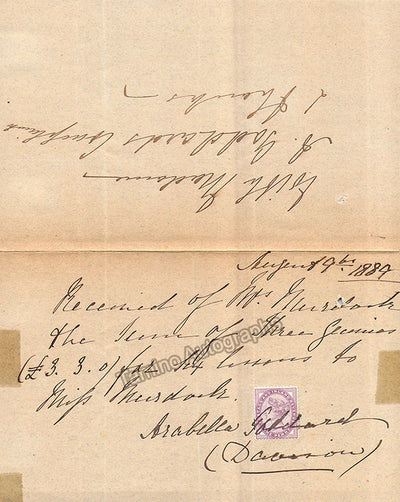 With Madame
A. Goddard's Compliments
& Thanks
August 9th. 1889
Received of Mrs Murdoch
the sum of Three Guineas
(£3. 3. 0) for six lessons to
Miss Murdoch.
Arabella Goddard
(Davison)
Tamino Autographs